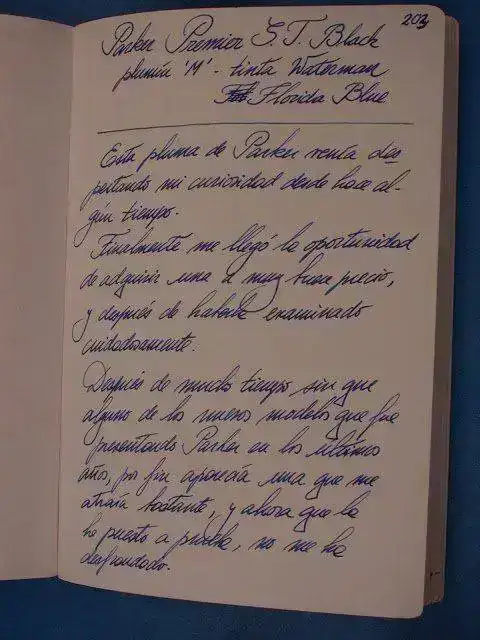 203
Parker Premier S.T. Black
plumín 'M' - tinta Waterman
Florida Blue
Esta pluma de Parker venía des-
pertando mi curiosidad desde hace al-
gún tiempo.
Finalmente me llegó la oportunidad
de adquirir una a muy buen precio,
y después de haberla examinado
cuidadosamente.
Después de mucho tiempo, sin que
alguno de los nuevos modelos que fue
presentando Parker en los últimos
años, por fin aparecía una que me
atraía bastante, y ahora que la
he puesto a prueba, no me ha
defraudado.